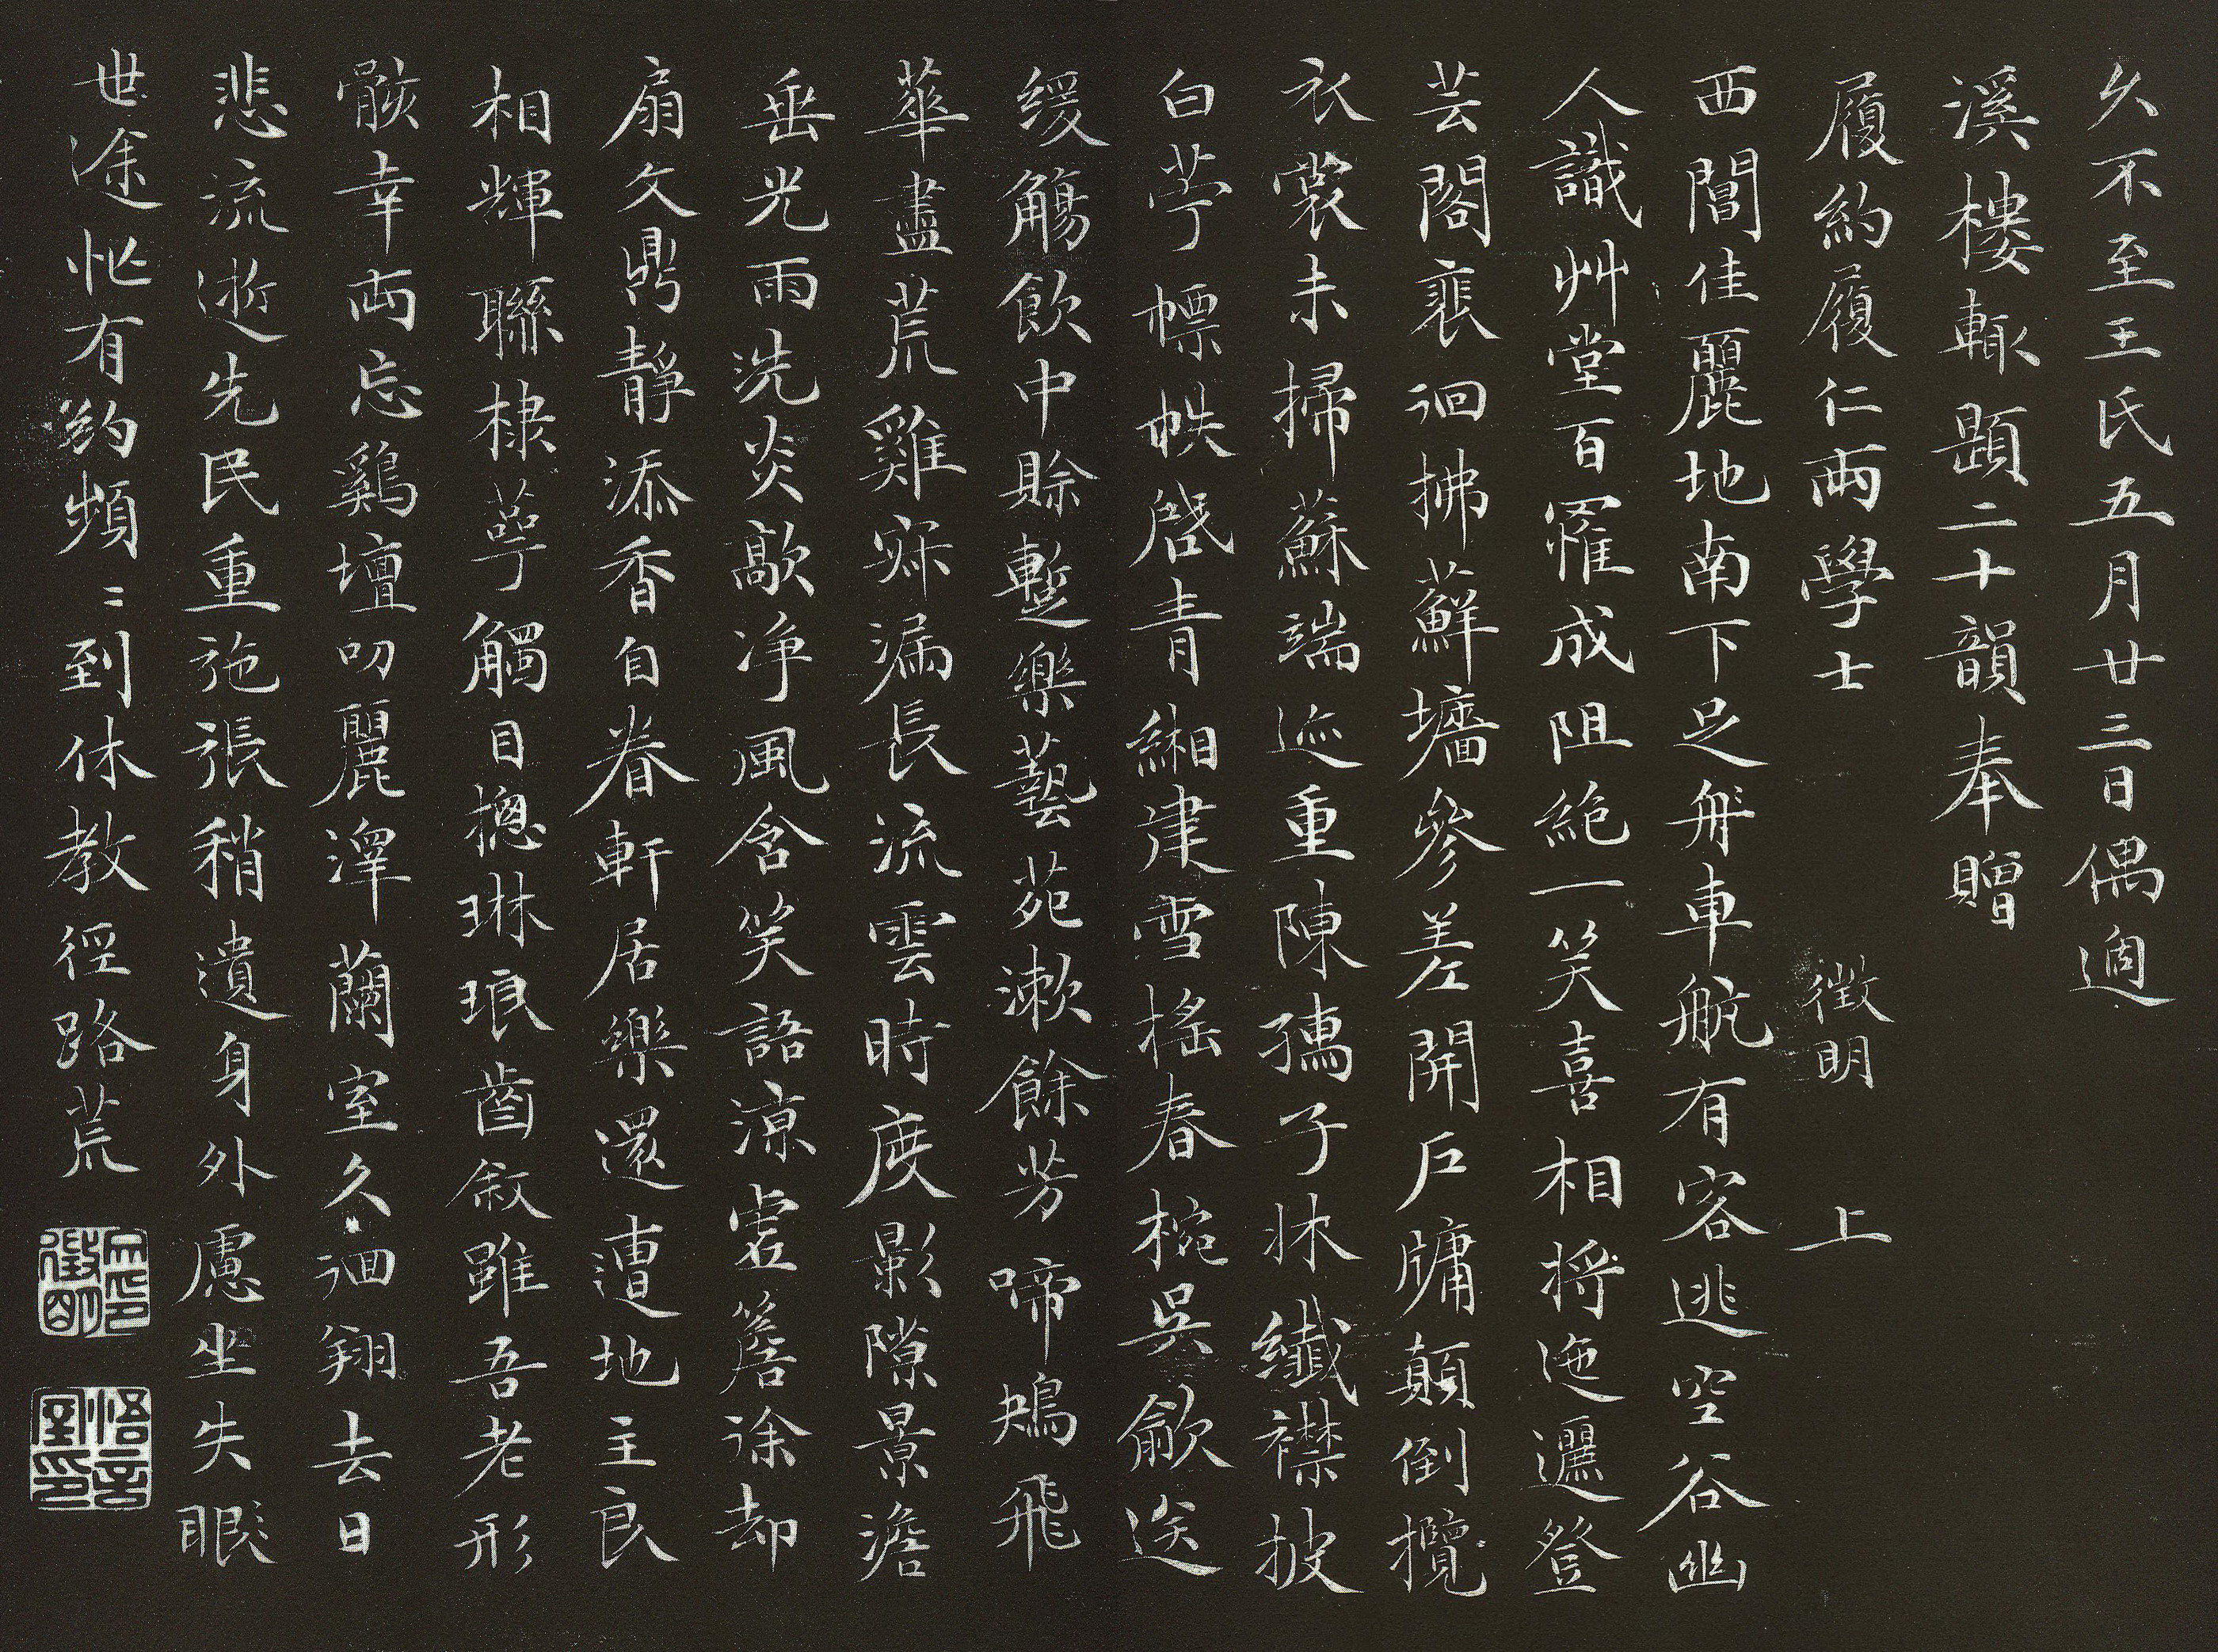 久不至王氏五月廿三日偶過
溪樓輙題二十韻奉贈
履約履仁兩學士　徵明　上
西閶佳麗地南下足舟車航有客逃空谷幽
人識艸堂百罹成阻絶一笑喜相將迤邐登
芸閣裴徊拂蘚墻參差開戶牖顛倒攬
衣裳未掃蘇端迹重陳孺子牀纖襟披
白苧幖帙啓青緗建雪搖春椀吳歈送
緩觴飲中賒蹔樂藝苑漱餘芳啼鴂飛
華盡荒雞寐漏長流雲時度影隙景澹
垂光雨洗炎歊净風含笑語涼虛簷徐却
扇文鼎靜添香自眷軒居樂還遭地主良
相輝聯棣萼觸目摠琳琅齒敘雖吾老形
骸幸両忘鷄壇叨麗澤蘭室久徊翔去日
悲流逝先民重弛張稍遺身外慮坐失眼
世途忙有約頻〻到休教徑路荒
徵明印
悟言室印